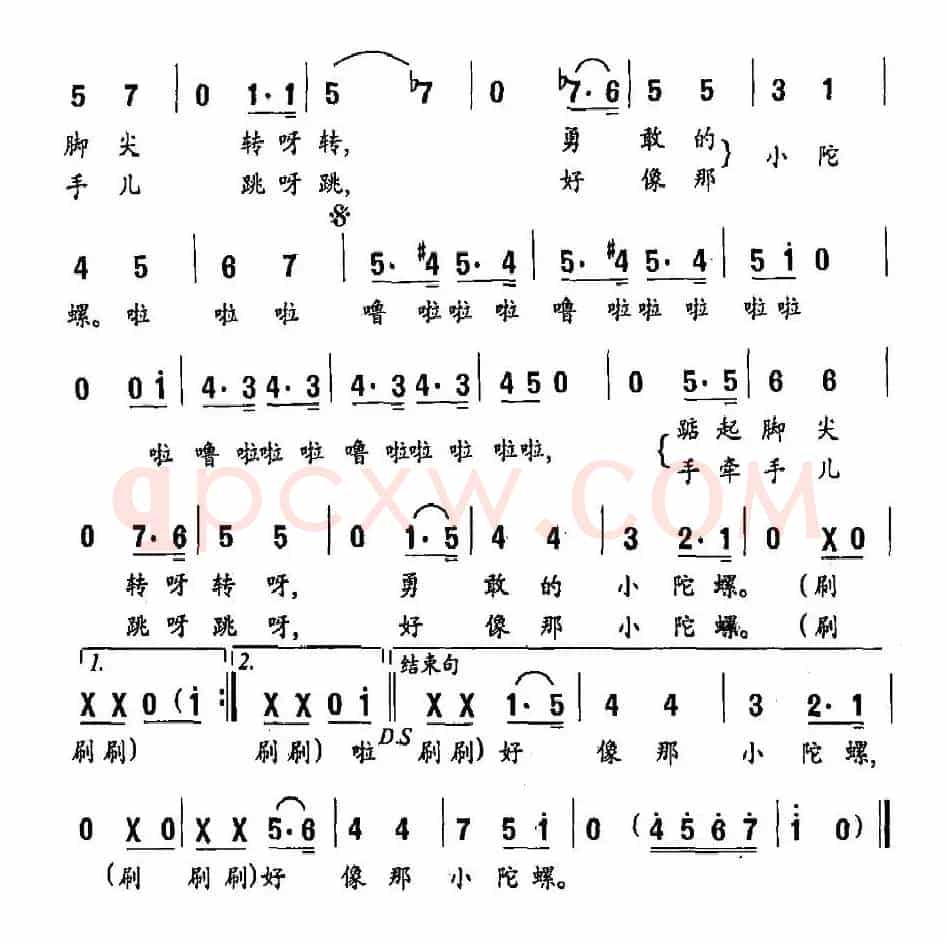 5 7 | 0 1·1 | 5 ♭7 | 0 ♭7·6 | 5 5 | 3 1 |
脚尖 转呀转, 勇敢的 } 小陀
手儿 跳呀跳, 好像那
𝄋
4 5 | 6 7 | 5·#4 5·4 | 5·#4 5·4 | 5 i 0 |
螺。啦 啦 啦 噜 啦啦 啦 噜 啦啦 啦 啦啦
0 0 i | 4·3 4·3 | 4·3 4·3 | 4 5 0 | 0 5·5 | 6 6 |
啦 噜 啦啦 啦 噜 啦啦 啦 啦啦, { 踮起脚尖
手牵手儿
qpcxw.COM
0 7·6 | 5 5 | 0 1·5 | 4 4 | 3 2·1 | 0 X 0 |
转呀转呀, 勇敢的 小陀螺。(刷
跳呀跳呀, 好像那 小陀螺。(刷
1. 2. 结束句
X X 0 (i :‖ X X 0 i ‖ X X 1·5 | 4 4 | 3 2·1 |
D.S
刷刷) 刷刷) 啦 刷刷) 好 像那 小陀螺,
0 X 0 | X X 5·6 | 4 4 | 7 5 i | 0 (4 5 6 7 | i 0) ‖
(刷 刷刷)好 像那 小陀螺。